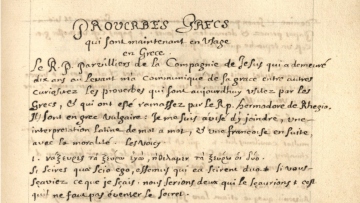 PROVERBES GRECS
qui sont maintenant en Usage
en Grece.
Le R. P. Parvilliers de la Compagnie de Jesus qui a demeuré
dix ans au levant m'a Communiqué de sa grace entre autres
curiositez les proverbes qui sont aujourdhuy usitez par les
Grecs, et qui ont esté ramassez par le R. p. hermodore de Rhegio.
Ils sont en grec vulgaire: Je me suis avisé d'y joindre, une
interpretation latine de mot a mot, et une francoise en suite,
avec la moralité: les voicy
1. τα ξευρω
Si scires quae scio ego, essemus qui ea scirent duo. si vous
sçaviez ce que je sçais: nous serions deux qui le sçaurions: c'est
qu'il ne faut pas éventer le secret.